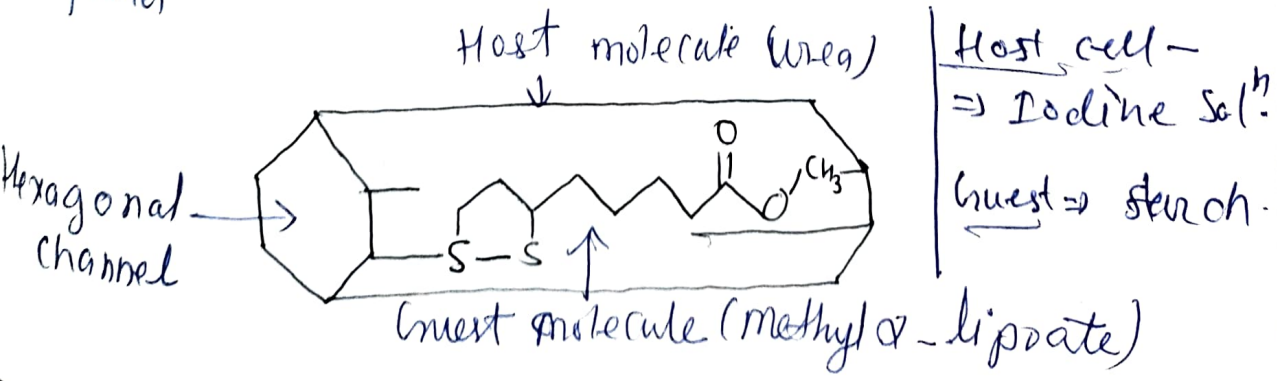 Host molecule (urea)
Hexagonal
channel
O
O
CH3
S-S
Guest molecule (methyl α-lipoate)
Host cell -
=> Iodine Solⁿ.
Guest => starch.